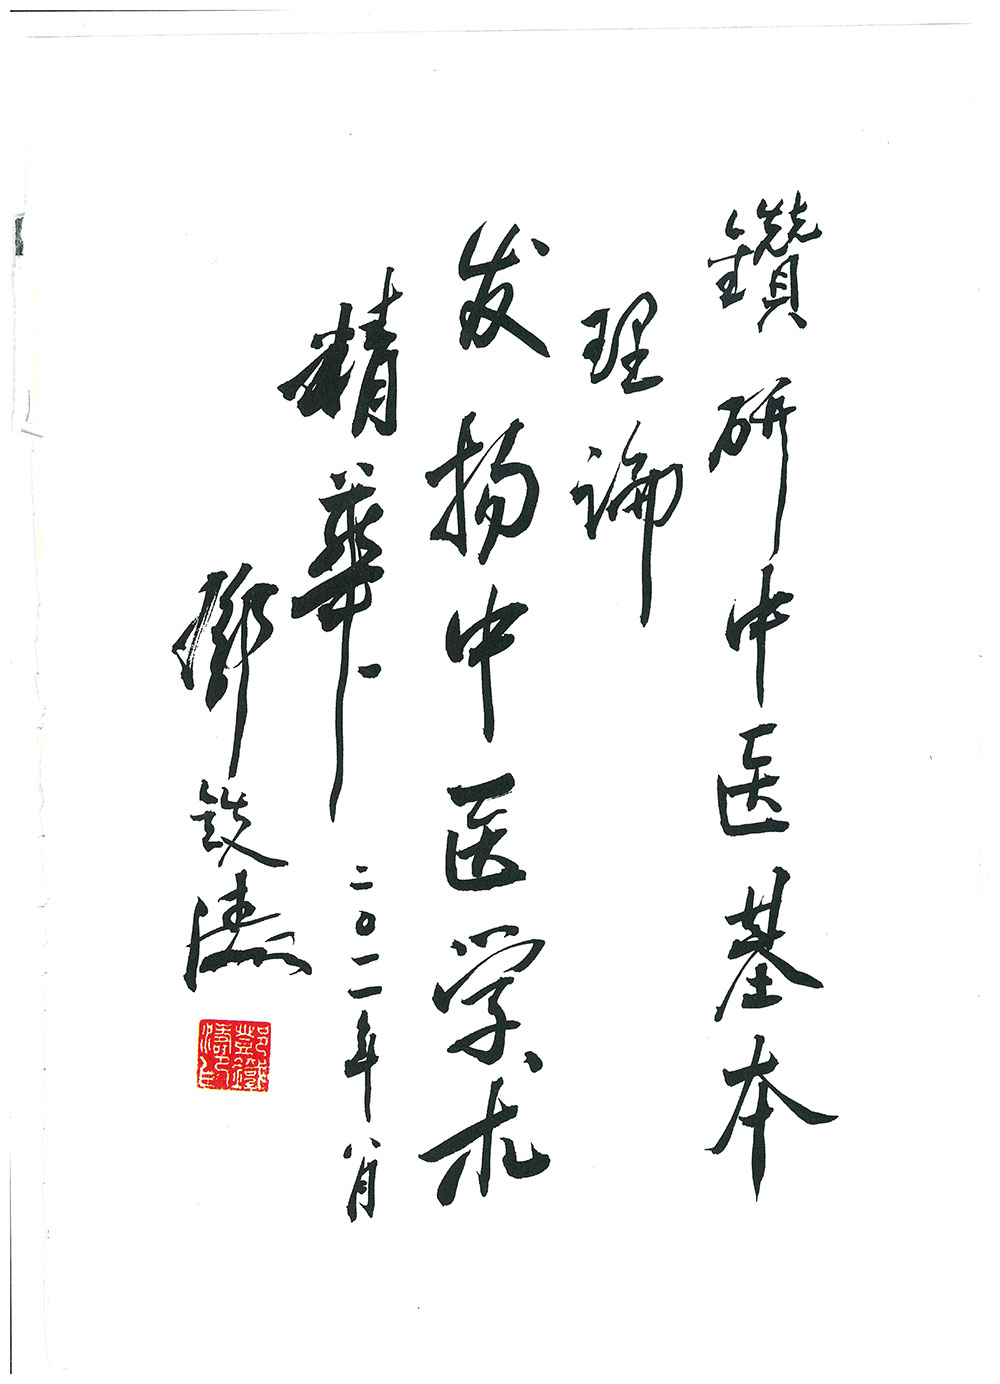 鑽研中医基本
理論
发扬中医学术
精華
二〇一一年八月
鄧鉄濤
鄧鐵濤印